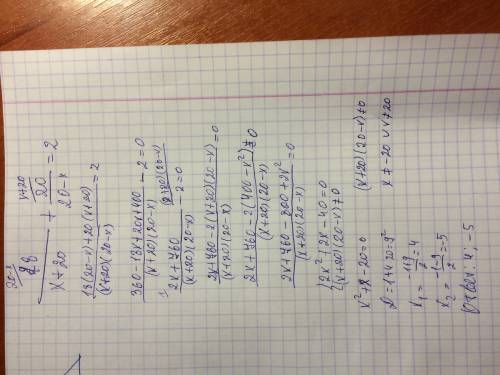 18/(x+20) + 20/(20-x) = 2
(18(20-x)+20(x+20))/((x+20)(20-x)) = 2
(360-18x+20x+400)/((x+20)(20-x)) - 2 = 0
(2x+760)/((x+20)(20-x)) - 2 = 0
(2x+760-2(x+20)(20-x))/((x+20)(20-x)) = 0
(2x+760-2(400-x²))/((x+20)(20-x)) = 0
(2x+760-800+2x²)/((x+20)(20-x)) = 0
2x²+2x-40=0
(x+20)(20-x)≠0
x²+x-20=0 (x+20)(20-x)≠0
D=1+4·20=9² x≠-20 ∪ x≠20
x₁ = (-1+9)/2 = 4
x₂ = (-1-9)/2 = -5
Ответ: 4, -5